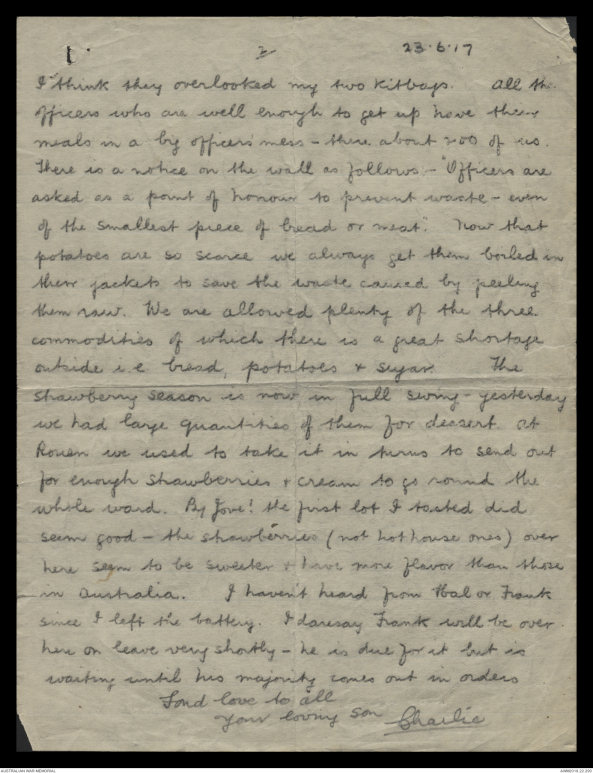 2 23.6.17
I think they overlooked my two kitbags. All the
officers who are well enough to get up have their
meals in a big officers' mess - there about 200 of us.
There is a notice on the wall as follows:- "Officers are
asked as a point of honour to prevent waste - even
of the smallest piece of bread or meat". Now that
potatoes are so scarce we always get them boiled in
their jackets to save the waste caused by peeling
them raw. We are allowed plenty of the three
commodities of which there is a great shortage
outside i.e. bread, potatoes & sugar. The
strawberry season is now in full swing - yesterday
we had large quantities of them for dessert. At
Rouen we used to take it in turns to send out
for enough strawberries & cream to go round the
whole ward. By Jove! the first lot I tasted did
seem good - the strawberries (not hothouse ones) over
here seem to be sweeter & have more flavor than those
in Australia. I haven't heard from Hal or Frank
since I left the battery. I daresay Frank will be over
here on leave very shortly - he is due for it but is
waiting until his majority comes out in orders
Fond love to all
Your loving son Charlie
AUSTRALIAN WAR MEMORIAL